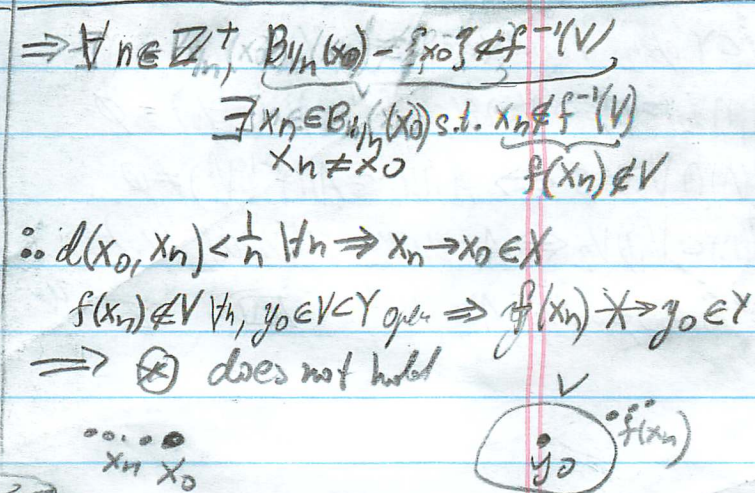 ⇒ ∀ n ∈ ℤ⁺, B₁/ₙ(x₀) - {x₀} ⊄ f⁻¹(V)
∃ xₙ ∈ B₁/ₙ(x₀) s.t. xₙ ∉ f⁻¹(V)
xₙ ≠ x₀ f(xₙ) ∉ V
∴ d(x₀, xₙ) < 1/n ∀n ⇒ xₙ → x₀ ∈ X
f(xₙ) ∉ V ∀n, y₀ ∈ V ⊂ Y open ⇒ f(xₙ) ↛ y₀ ∈ Y
⇒ ⊛ does not hold
V
xₙ x₀ y₀ f(xₙ)